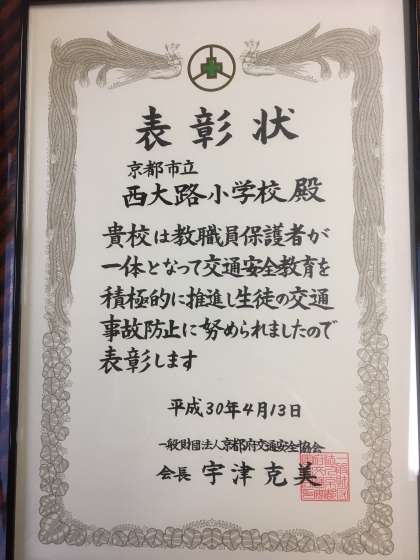 表彰状
京都市立
西大路小学校殿
貴校は教職員保護者が
一体となって交通安全教育を
積極的に推進し生徒の交通
事故防止に努められましたので
表彰します
平成30年4月13日
一般財団法人京都府交通安全協会
会長 宇津克美